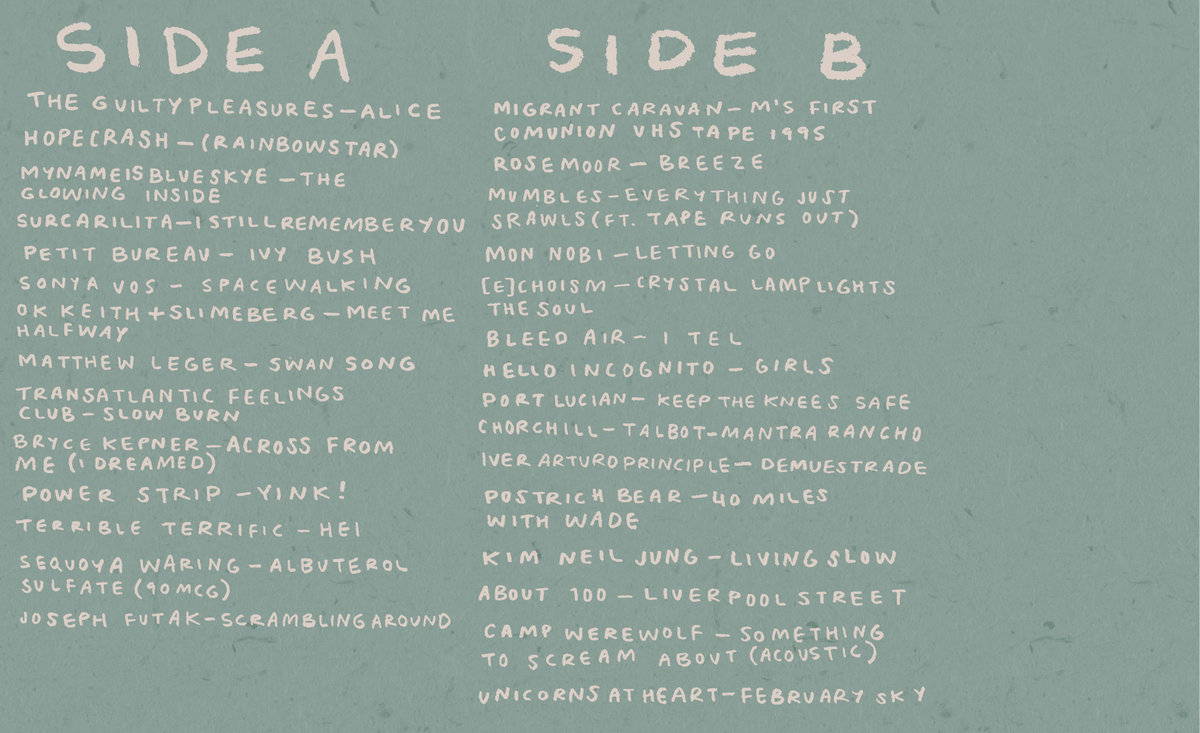 SIDE A
THE GUILTY PLEASURES—ALICE
HOPECRASH—(RAINBOWSTAR)
MYNAMEISBLUESKYE—THE
GLOWING INSIDE
SURCARILITA—ISTILLREMEMBERYOU
PETIT BUREAU—IVY BUSH
SONYA VOS—SPACEWALKING
OK KEITH+SLIMEBERG—MEET ME
HALFWAY
MATTHEW LEGER—SWAN SONG
TRANSATLANTIC FEELINGS
CLUB—SLOW BURN
BRYCE KEPNER—ACROSS FROM
ME (I DREAMED)
POWER STRIP—YINK!
TERRIBLE TERRIFIC—HEI
SEQUOYA WARING—ALBUTEROL
SULFATE (90MCG)
JOSEPH FUTAK—SCRAMBLING AROUND
SIDE B
MIGRANT CARAVAN—M'S FIRST
COMUNION VHS TAPE 1995
ROSEMOOR—BREEZE
MUMBLES—EVERYTHING JUST
SRAWLS (FT. TAPE RUNS OUT)
MON NOBI—LETTING GO
[E]CHOISM—CRYSTAL LAMPLIGHTS
THE SOUL
BLEED AIR—I TEL
HELLO INCOGNITO—GIRLS
PORT LUCIAN—KEEP THE KNEES SAFE
CHORCHILL—TALBOT-MANTRA RANCHO
IVER ARTURO PRINCIPLE—DEMUESTRADE
POSTRICH BEAR—40 MILES
WITH WADE
KIM NEIL JUNG—LIVING SLOW
ABOUT 100—LIVERPOOL STREET
CAMP WEREWOLF—SOMETHING
TO SCREAM ABOUT (ACOUSTIC)
UNICORNS AT HEART—FEBRUARY SKY